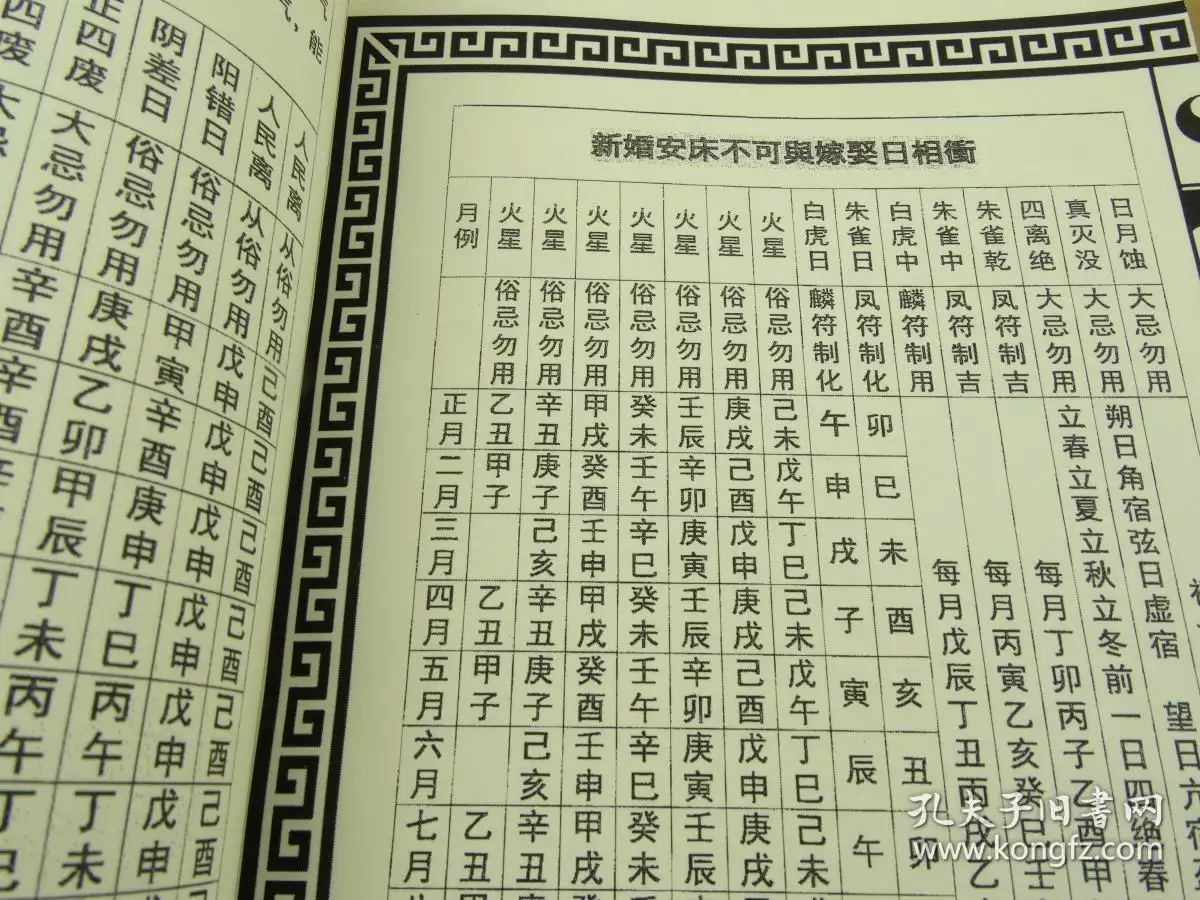 气，能
四废 正四废 阴差日 阳错日 人民离 人民离
大忌勿用 俗忌勿用 俗忌勿用 从俗勿用 从俗勿用
辛酉 庚戌 甲寅 戊申 己酉
辛酉 乙卯 辛酉 戊申 己酉
甲辰 庚申 戊申 己酉
丁未 丁巳 戊申 己酉
丙午 丙午 戊申 己酉
丁巳 丁未 戊申 己酉
新婚安床不可與嫁娶日相衝
月例 火星 火星 火星 火星 火星 火星 火星 白虎日 朱雀日 白虎中 朱雀中 朱雀乾 四离绝 真灭没 日月蚀
俗忌勿用 俗忌勿用 俗忌勿用 俗忌勿用 俗忌勿用 俗忌勿用 俗忌勿用 麟符制化 凤符制化 麟符制用 凤符制吉 凤符制吉 大忌勿用 大忌勿用 大忌勿用
正月 乙丑 辛丑 甲戌 癸未 壬辰 庚戌 己未 午 卯
二月 甲子 庚子 癸酉 壬午 辛卯 己酉 戊午 申 巳
三月 己亥 壬申 辛巳 庚寅 戊申 丁巳 戌 未
四月 乙丑 辛丑 甲戌 癸未 壬辰 庚戌 己未 子 酉
五月 甲子 庚子 癸酉 壬午 辛卯 己酉 戊午 寅 亥
六月 己亥 壬申 辛巳 庚寅 戊申 丁巳 辰 丑
七月 乙丑 辛丑 甲戌 癸未 壬辰 庚戌 己未 午 卯
每月戊辰丁丑丙戌乙
每月丙寅乙亥癸巳壬
每月丁卯丙子乙酉甲
立春立夏立秋立冬前一日四绝春
朔日角宿弦日虚宿
望日亢宿
孔夫子旧書网
www.kongfz.com